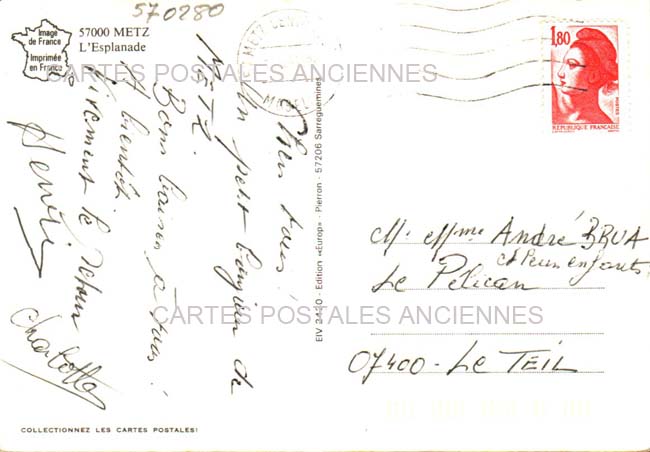 570280
Image
de France
Imprimée
en France
57000 METZ
L'Esplanade
Bien tous!
Un petit bonjour de
METZ
Bons baisers à tous!
A bientôt
Vivement le retour
Henri
Charlotte
EIV 3420 - Edition «Europ» - Pierron - 57206 Sarreguemines
METZ
MOSELLE
1,80
REPUBLIQUE FRANÇAISE
M. et Mme André BRUA
et leurs enfants
Le Pélican
07400 - Le TEIL
CARTES POSTALES ANCIENNES
CARTES POSTALES ANCIENNES
COLLECTIONNEZ LES CARTES POSTALES!